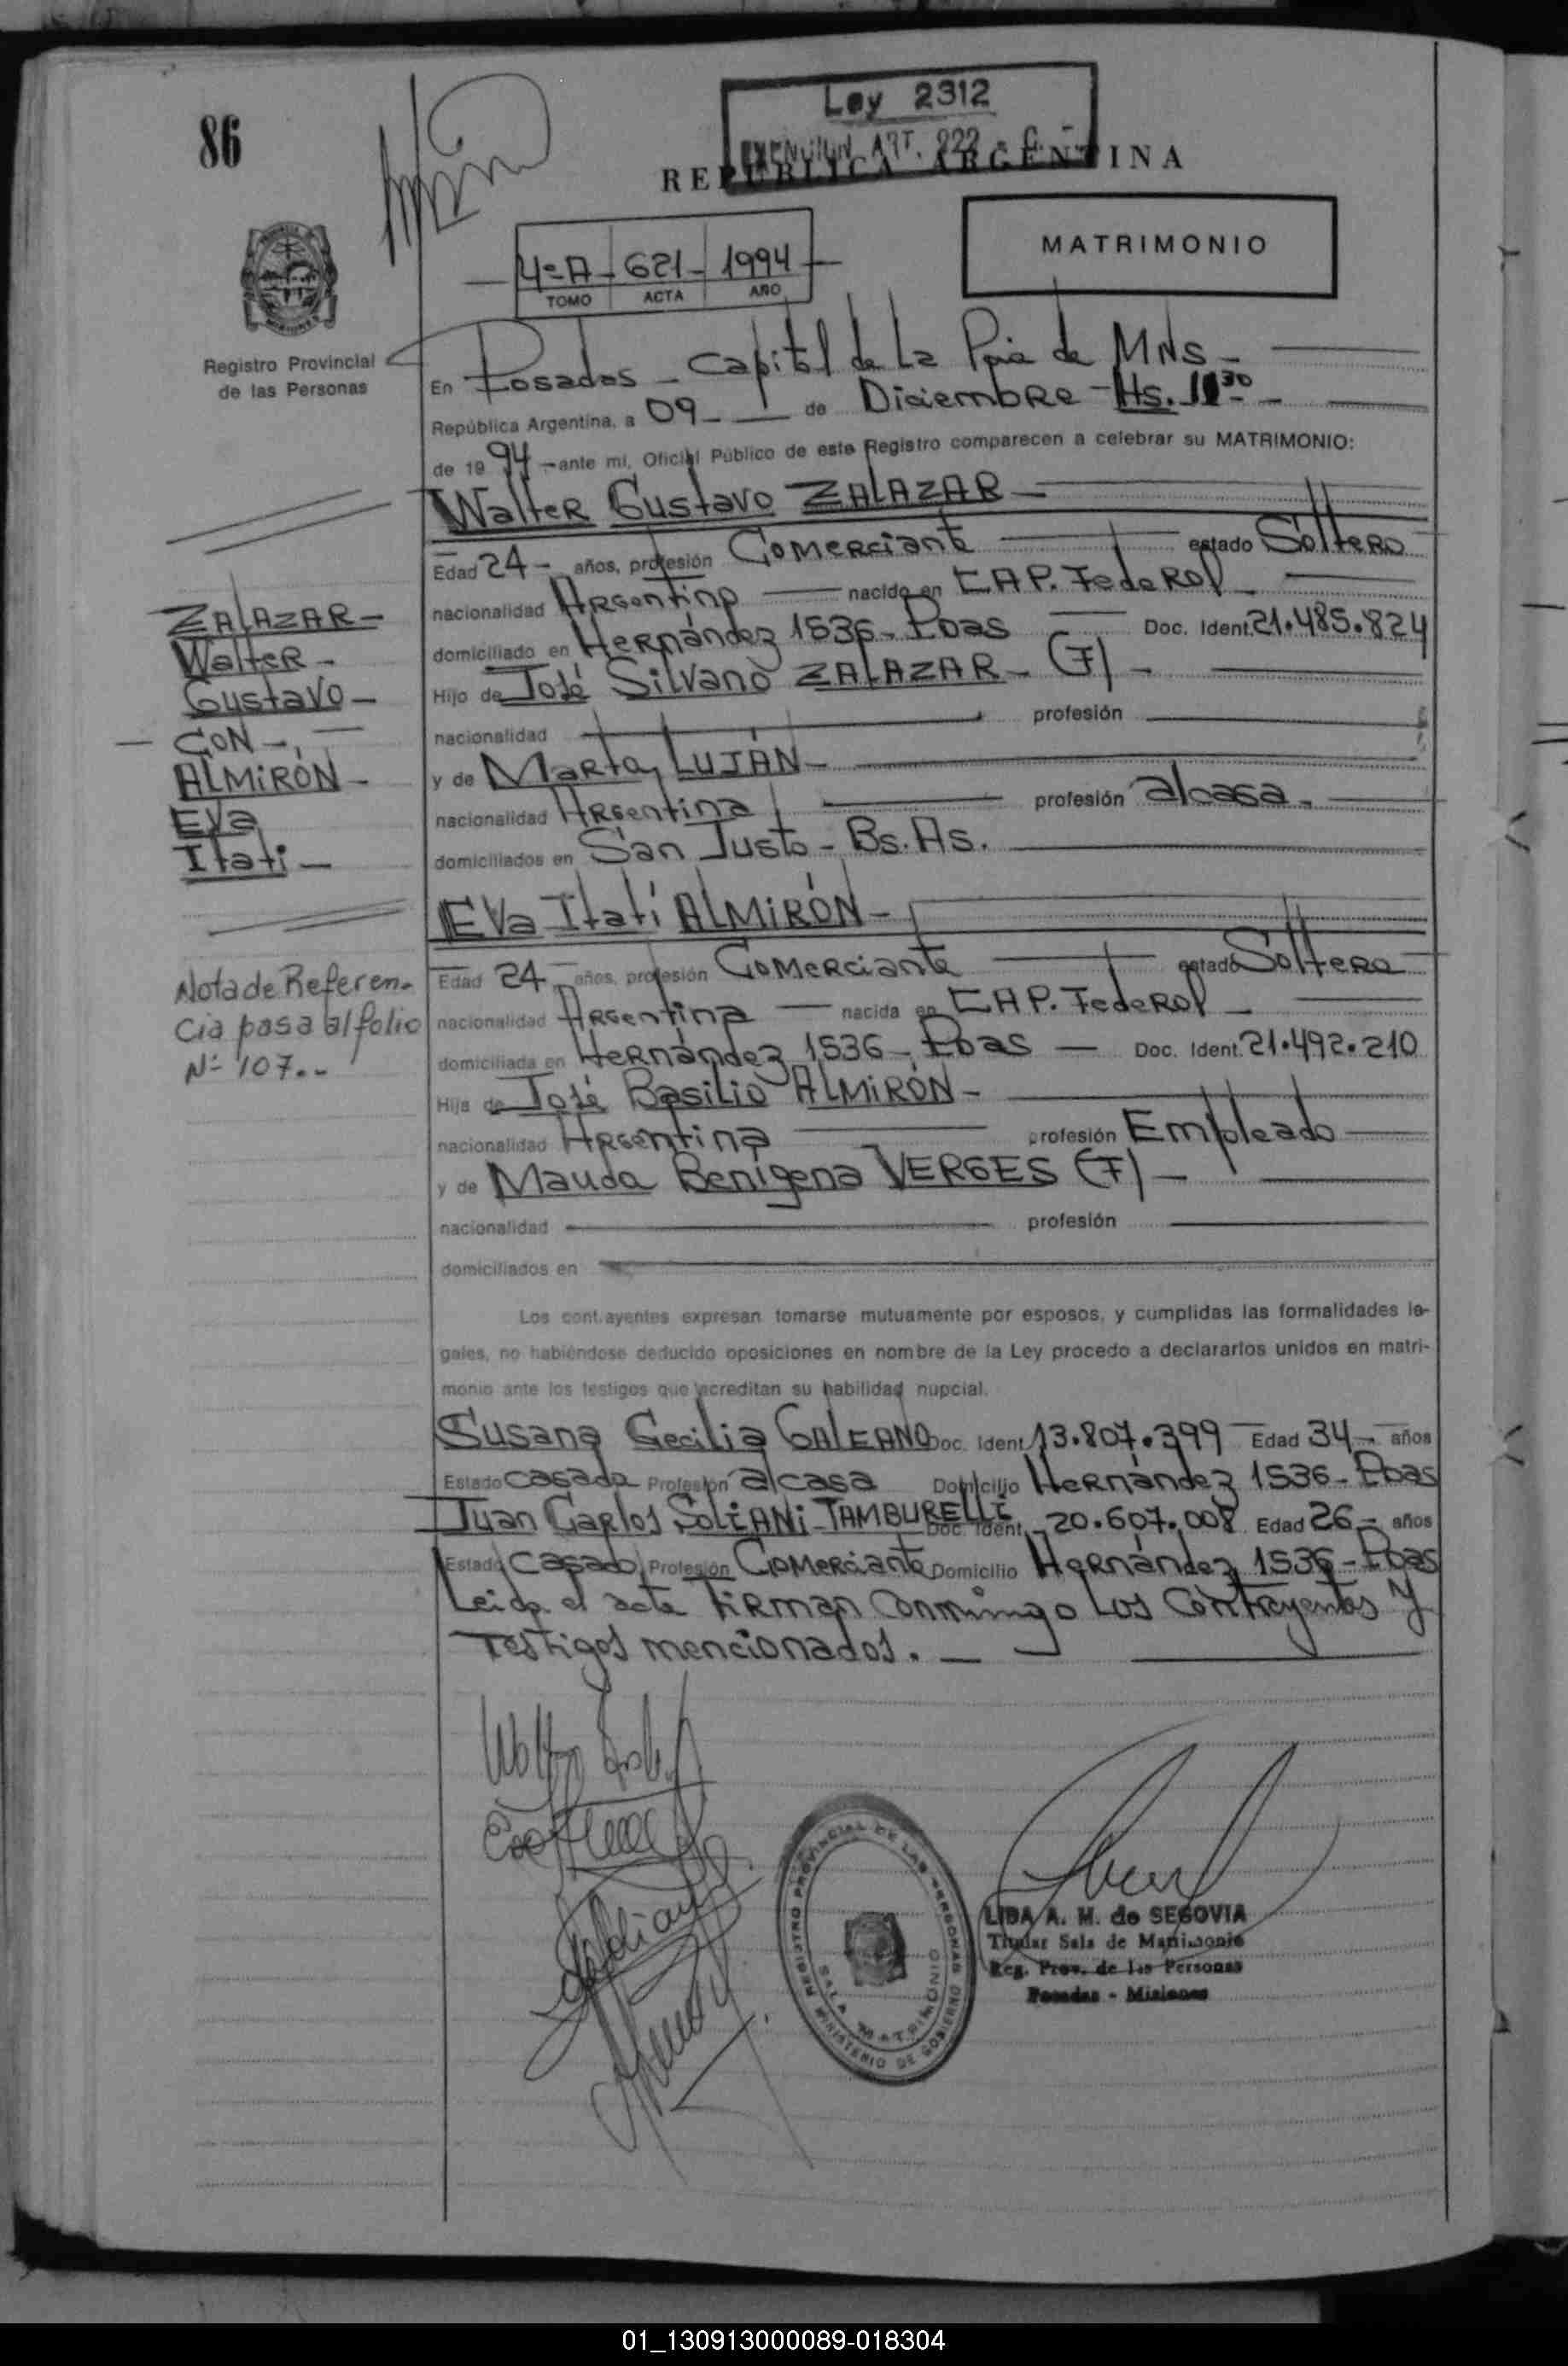 86
Ley 2312
EXENCION ART. 222
REPUBLICA ARGENTINA
MATRIMONIO
4º A - 621 - 1994
TOMO ACTA AÑO
Registro Provincial
de las Personas
En Posadas - Capital de La Pcia de MNS -
República Argentina, a 09 - de Diciembre - Hs. 11 30 -
de 19 94 - ante mi, Oficial Público de este Registro comparecen a celebrar su MATRIMONIO:
Walter Gustavo ZALAZAR -
Edad 24 - años, profesión Comerciante estado Soltero
nacionalidad Argentina nacido en CAP. Federal -
domiciliado en Hernández 1536 - Pdas Doc. Ident. 21.485.824
Hijo de José Silvano ZALAZAR - (F) -
nacionalidad profesión
y de Marta LUJÁN -
nacionalidad Argentina profesión alcasa -
domiciliados en San Justo - Bs. As.
ZALAZAR -
Walter -
Gustavo -
CON -
ALMIRÓN -
Eva
Itati -
Eva Itatí ALMIRÓN -
Edad 24 - años, profesión Comerciante estado Soltera
nacionalidad Argentina nacida en CAP. Federal -
domiciliada en Hernández 1536 - Pdas - Doc. Ident. 21.492.210
Hija de José Basilio ALMIRÓN -
nacionalidad Argentina profesión Empleado
y de Mauda Benigena VERGES (F) -
nacionalidad profesión
domiciliados en
Nota de Referen-
cia pasa al folio
Nº 107..
Los contrayentes expresan tomarse mutuamente por esposos, y cumplidas las formalidades le-
gales, no habiéndose deducido oposiciones en nombre de la Ley procedo a declararlos unidos en matri-
monio ante los testigos que acreditan su habilidad nupcial.
Susana Cecilia GALEANO Doc. Ident. 13.807.399 Edad 34 - años
Estado casada Profesión alcasa Domicilio Hernández 1536 - Pdas
Juan Carlos SOLIANI - TAMBURELLI Doc. Ident. 20.607.008 Edad 26 - años
Estado Casado Profesión Comerciante Domicilio Hernández 1536 - Pdas
Leida el acta firman conmingo los contrayentes y
testigos mencionados. -
REGISTRO PROVINCIAL DE LAS PERSONAS
SALA MATRIMONIO
MINISTERIO DE GOBIERNO
LIDA A. M. de SEGOVIA
Titular Sala de Matrimonio
Reg. Prov. de las Personas
Posadas - Misiones
01_130913000089-018304